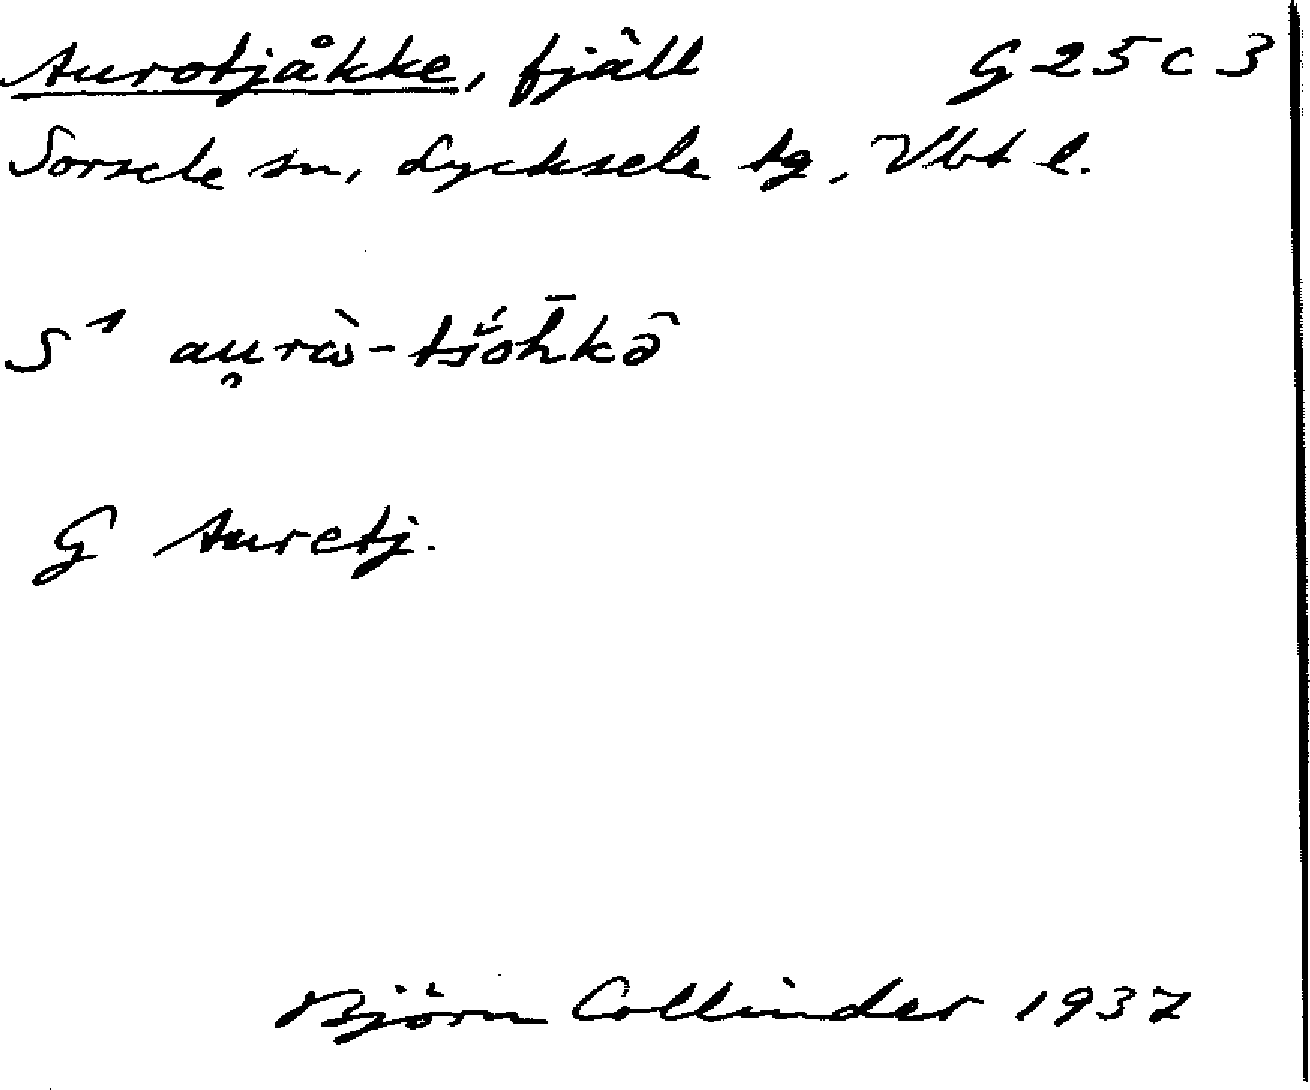 Aurotjåkke, fjäll G 25 c 3
Sorsele sn, Lycksele tg, Vbt l.
S¹ au̯rὼ-tśŏ́h̄kə̑
G Auretj.
Björn Collinder 1937